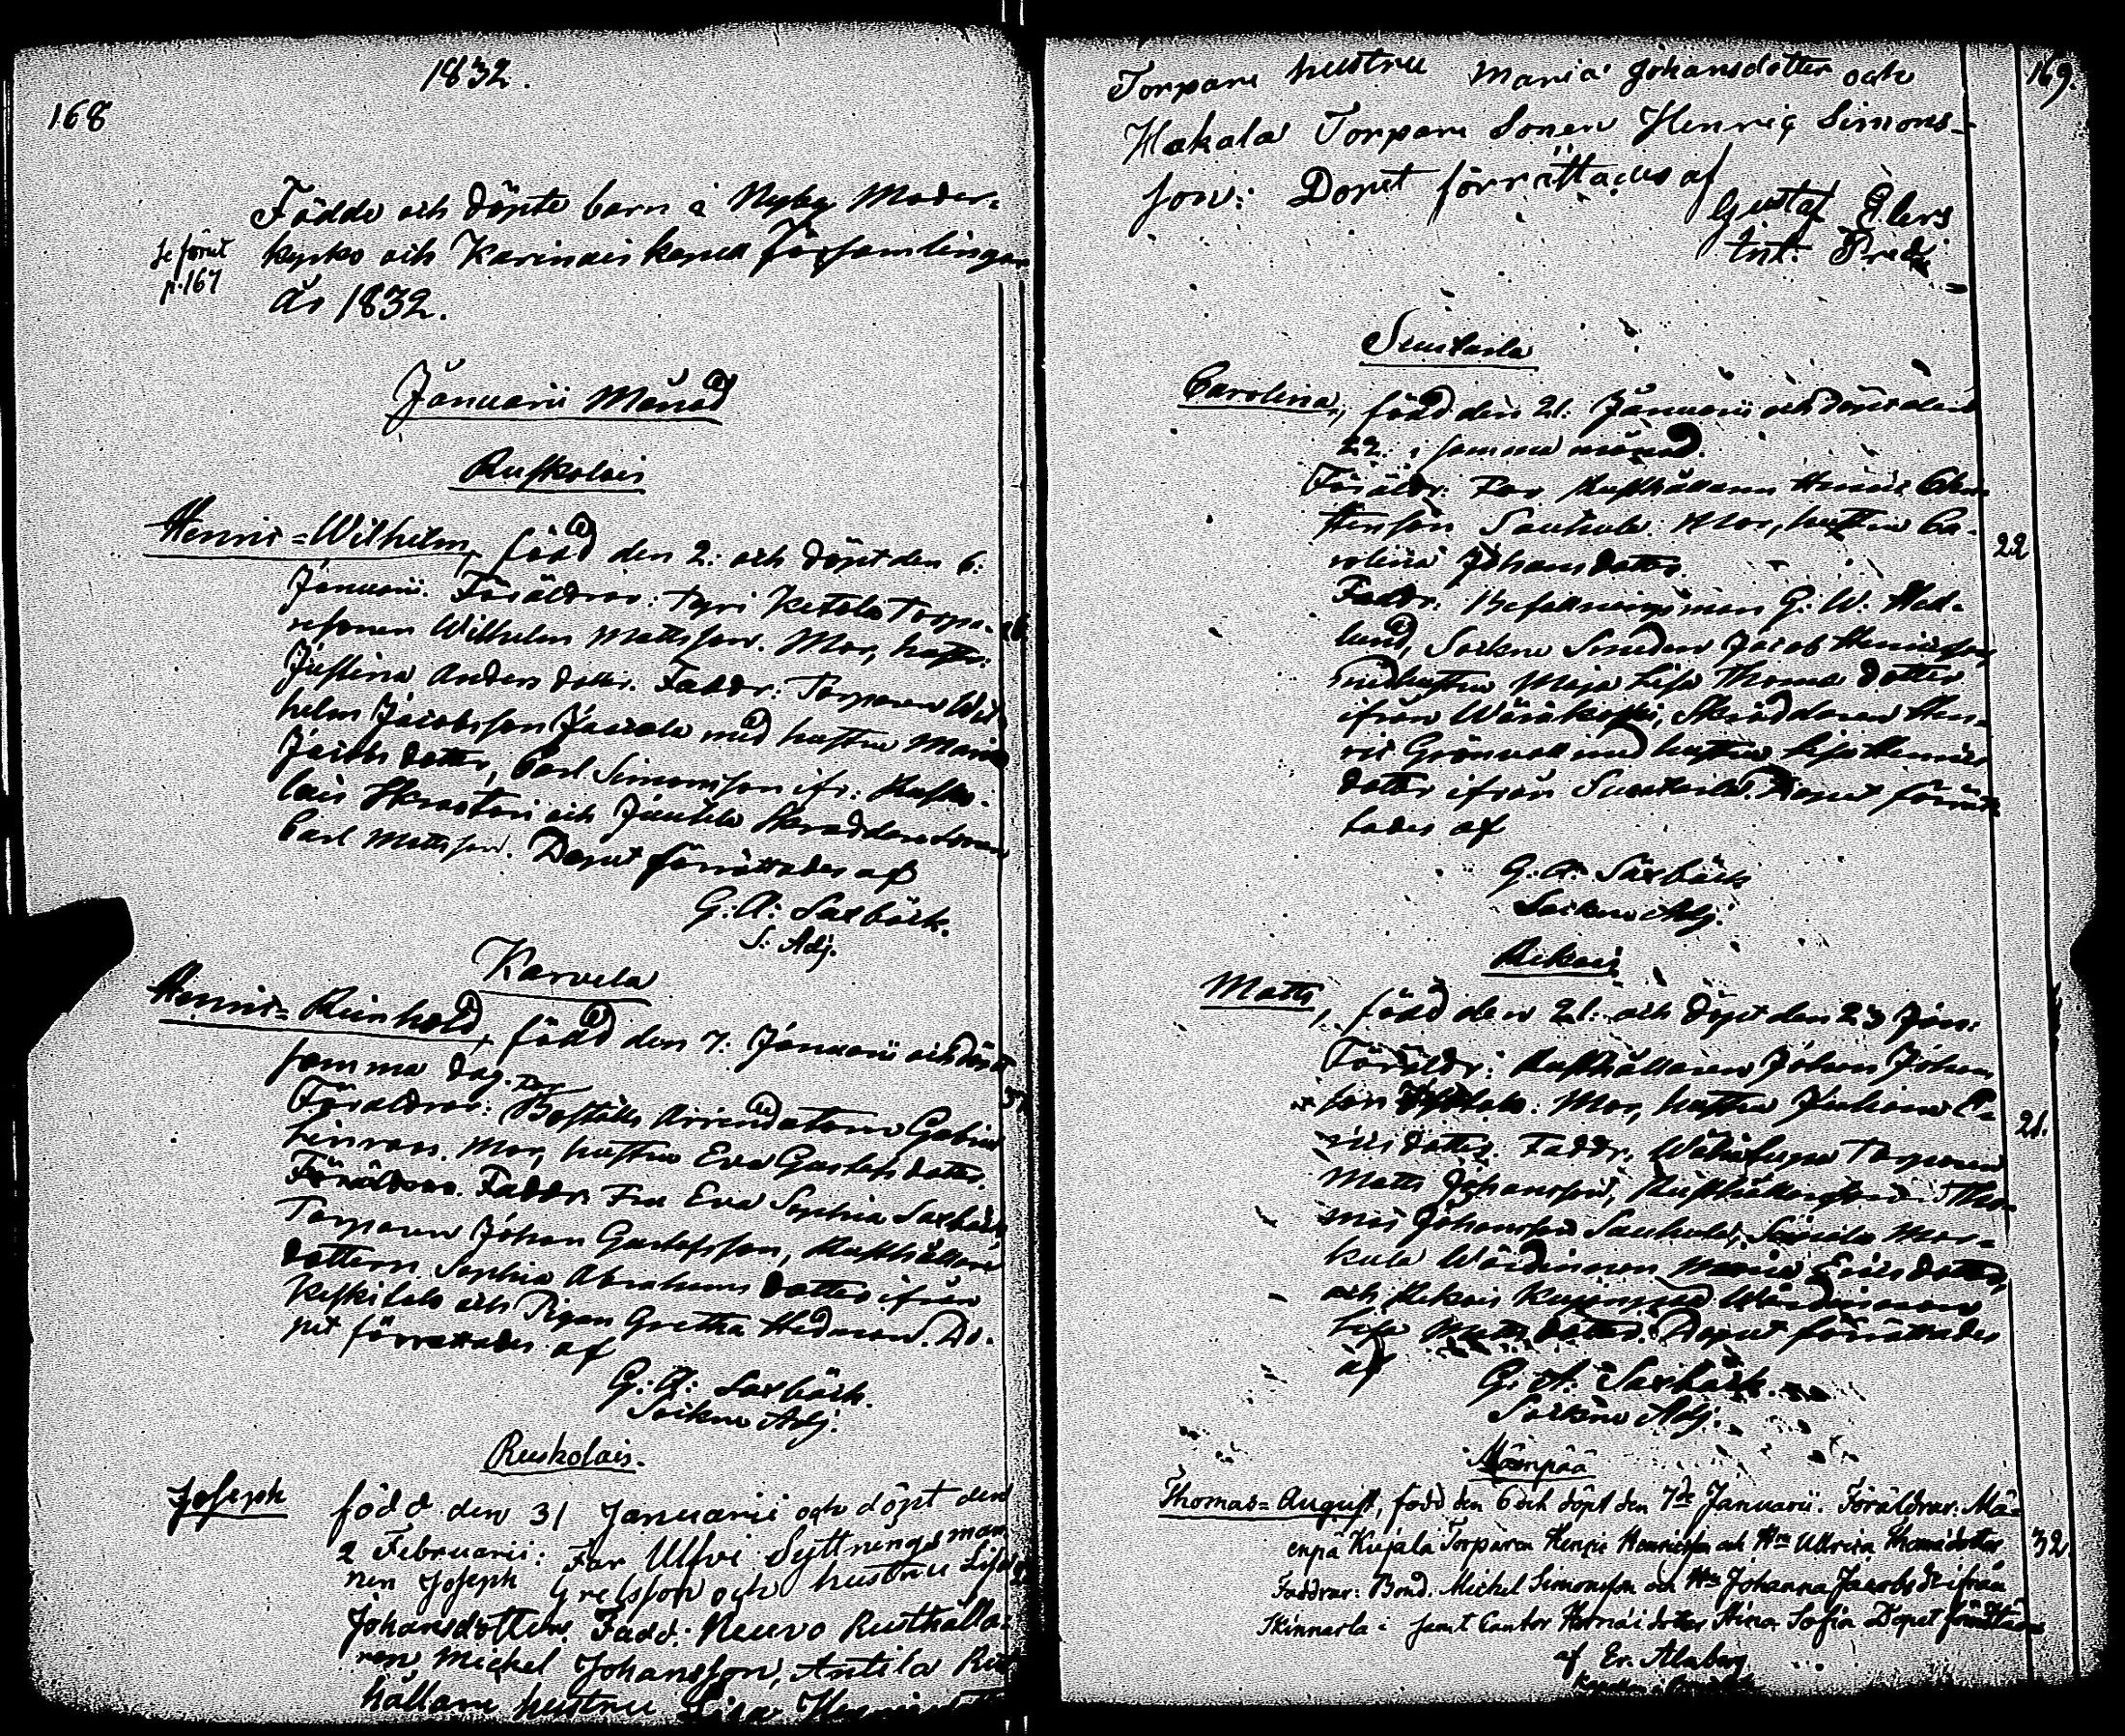 1832.
168
Födde och döpte barn i Nykyrko Moder-
kyrko och Karinais kapell Församlingar
år 1832.
Se förut
p. 167
Januarii Månad
Ruskolais
Henric=Wilhelm, född den 2: och döpt den 6:
Januarii. Föräldrar: Tyri Ketola Torpa-
resonen Wilhelm Mattsson. Mor, hustr:
Justina Anders dotter. Faddr: Torparen Wil-
helm Jacobsson Jussila med hustru Maria
Jacobs dotter, Carl Simonsson ifr: Rusko-
lais och Skräddaresonen
Carl Mattsson. Dopet förrättades af
G: A: Saxbäck.
S: Adj.
Karvela
Henric=Reinhold, född den 7: Januarii och döpt
samma dag.
Föräldrar: Far Boställs Arrendatorn Gabriel
Linroos. Mor, hustru Eva Gustafs dotter.
Föräldrar. Faddr: Fru Eva Sophia Saxbäck,
Torparen Johan Gustafsson, Rusthållare
dottern Sophia Abrahams dotter ifrån
Keskitalo och Pigan Gretha Hedman. Do-
pet förrättades af
G: A: Saxbäck.
Sockne Adj:
Ruskolais.
Joseph född den 31 Januarii och döpt den
2 Februarii: Far Ulfvi Syttningsman
nen Joseph Grelsson och hustru Lisa
Johansdotter. Fadd: Neuvo Rusthålla-
ren Michel Johansson, Antila Rust
hållare hustru Lisa
169.
Torpare hustru Maria Johansdotter och
Hakala Torpare Sonen Henrig Simons-
son: Dopet förrättades af
Gustaf Elers
Int. Pred:
Suutarla
Carolina, född den 21: Januarii och döpt den
22: i samma månad.
Föräldr: Far Rusthållaren Henric
Henson Sauhula: Mor, hustru Ca-
rolina Johans dotter
22
Faddr: Befallningsman G: W: Hed-
lund, Sockne Smeden Jacob Henricsson
Smedhustru Maja Lisa Thomas dotter
ifrån Wäräkoski, Skräddaren Hen-
ric Grönvall med hustru Lisa Henrics
dotter ifrån Suutarla. Dopet förrät-
tades af
G: A: Saxbäck
Sockne Adj:
Rekois
Matts, född den 21: och döpt den 23 Jan:
Föräldr: Rusthållaren Johan Johans
son: Mor, hustru Johanna E-
rics dotter. Faddr: Torparen
21.
Matts Johansson, Rusthållaresonen Tho-
mas Johansson Sauhula, Mar-
kula Wärdinnan Maria Erics dotter,
och Rekois Wärdinnan
Lisa Matts dotter. Dopet förrättades
af
G: A: Saxbäck.
Sockne Adj:
Mäenpää
Thomas=August, född den 6 och döpt den 7de Januarii. Föräldrar: Mä-
enpä Kujala Torparen Henric Henricsson och Hru Ulrica Thomædotter
32.
Faddrar: Bond. Michel Simonsson och Hru Johanna Jacobsdr ifrån
Skinnarla: samt Cantor dotter Sofia Dopet förrättades
af Er. Alnberg